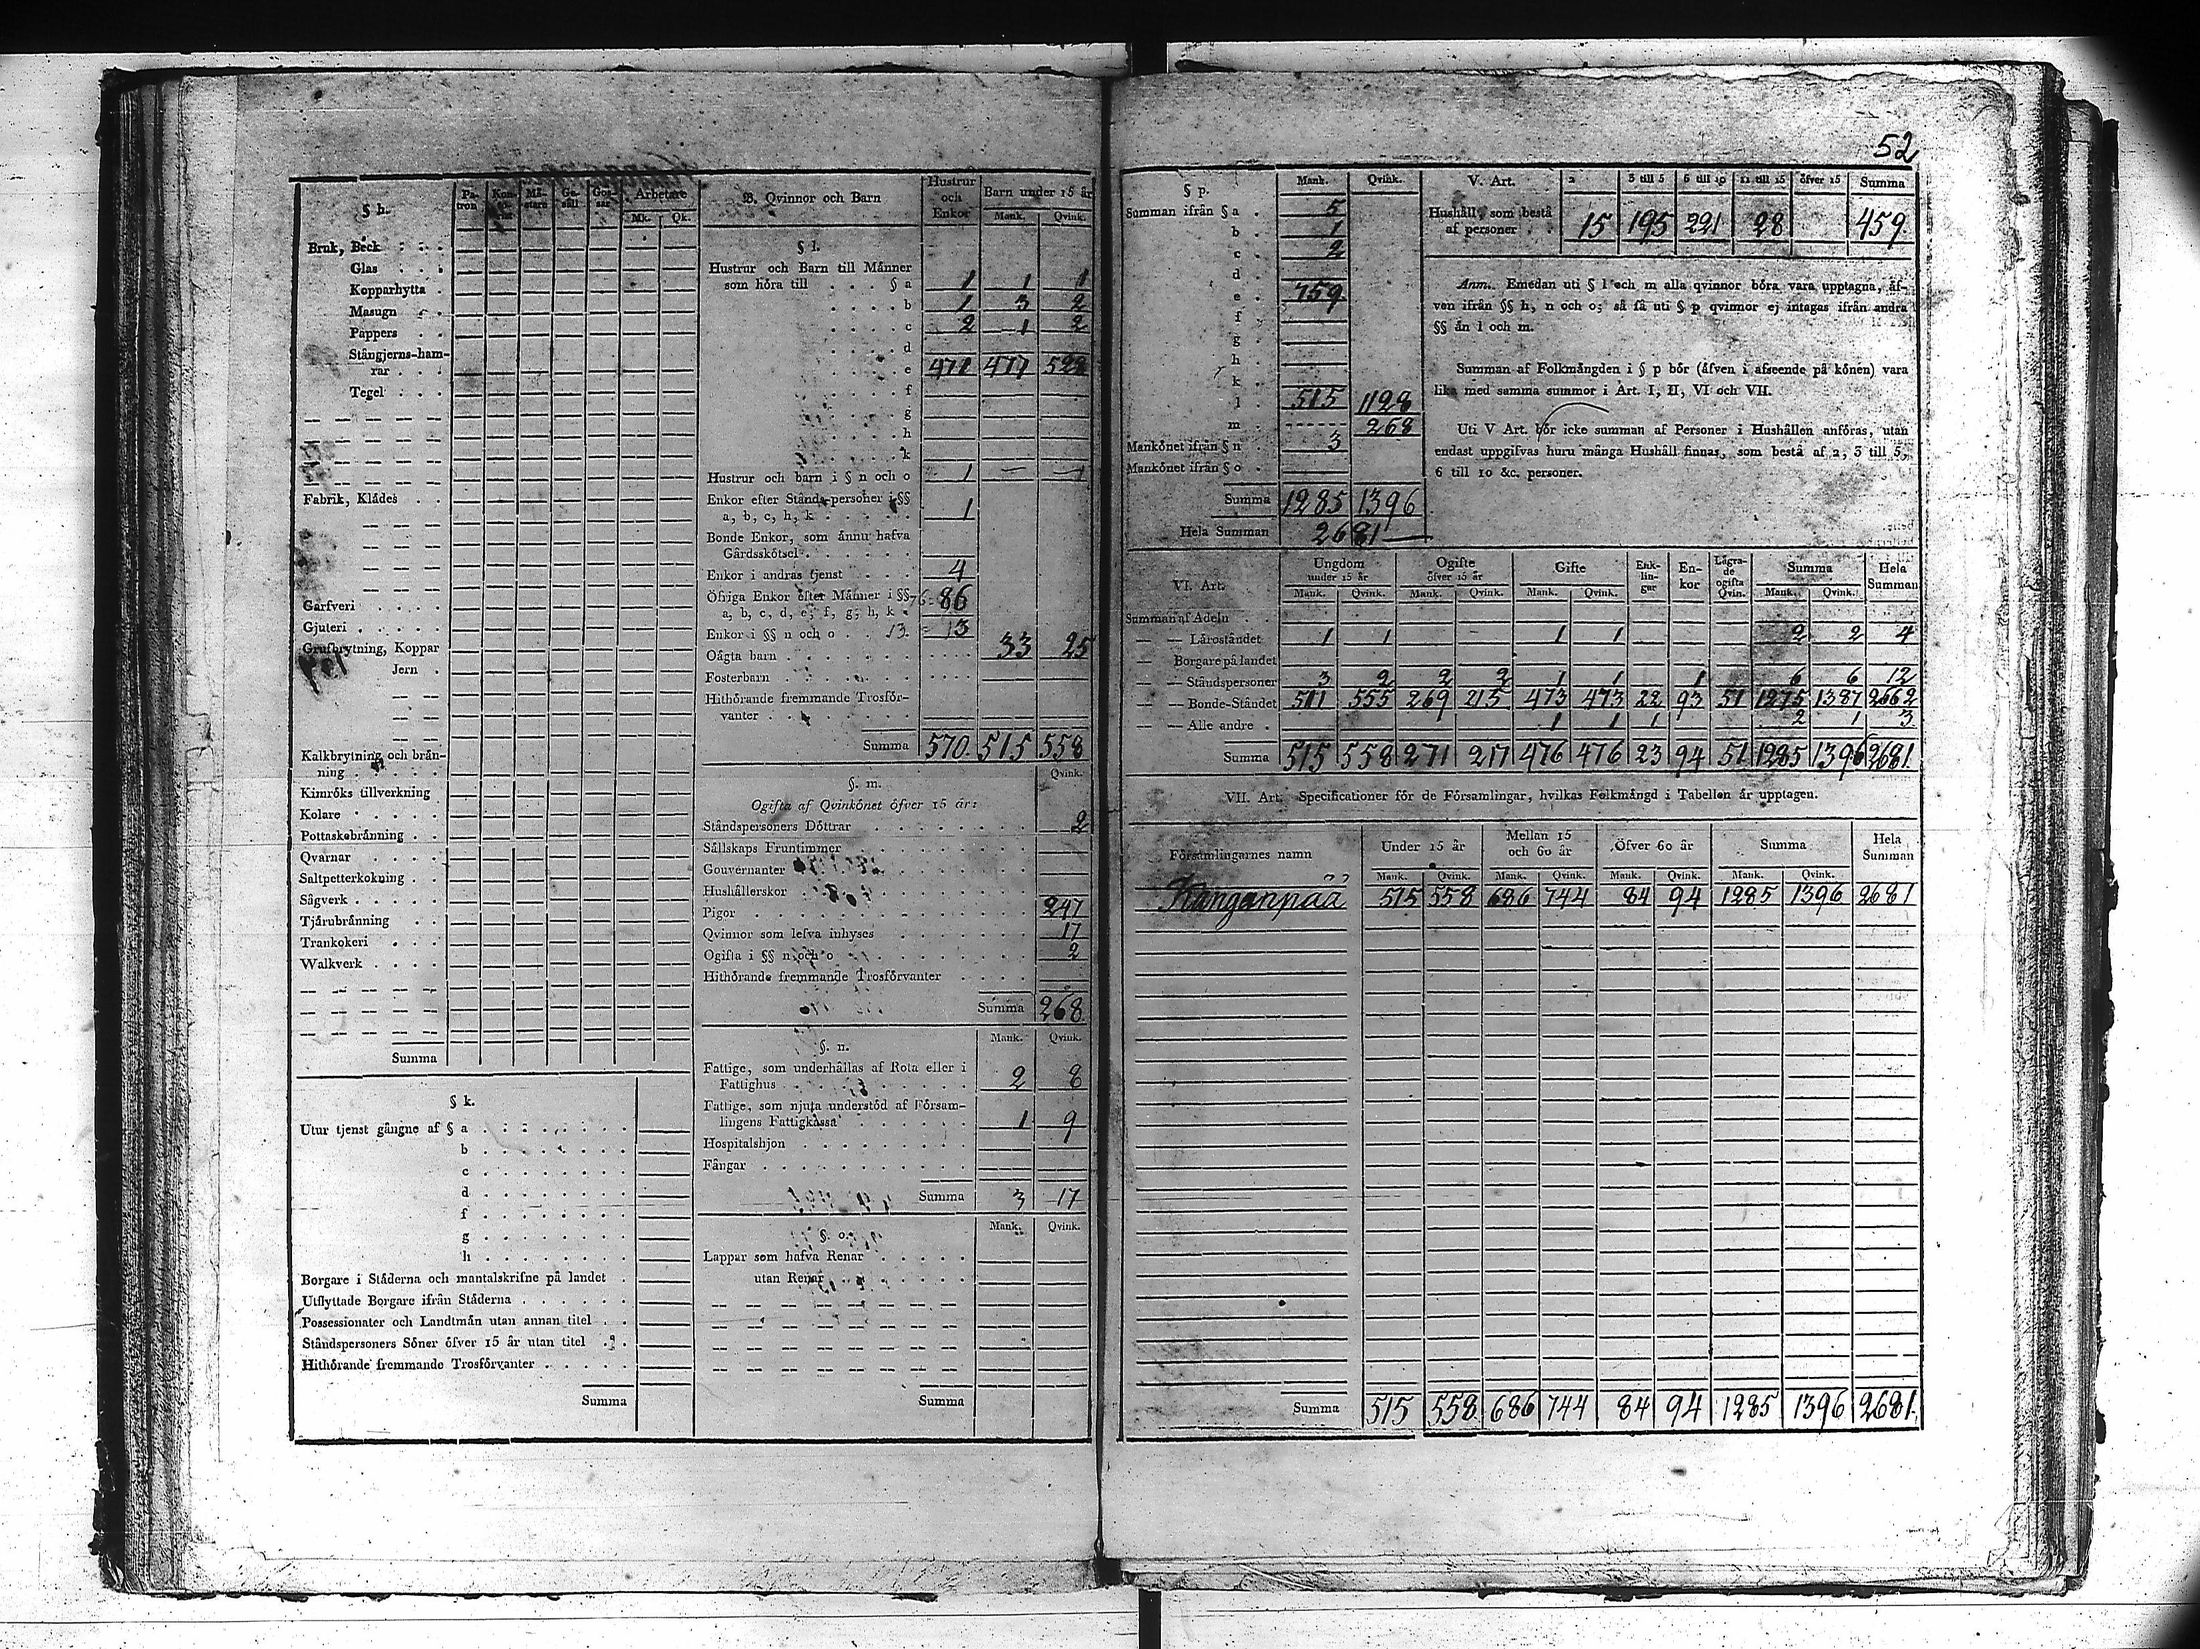 § h.
Pa-
tron
Må-
stare
Ge-
säll
Gos-
sar
Arbetare
Mk. Qk.
Bruk, Beck . . .
Glas . . .
Kopparhytta .
Masugn . .
Pappers . .
Stångjerns-ham-
rar . . .
Tegel . . .
Fabrik, Klådes . .
Garfveri . . . .
Gjuteri . . . . .
Grufbrytning, Koppar
Jern .
Kalkbrytning och brån-
ning . . . . .
Kimröks tillverkning
Kolare . . . . .
Pottaskebrånning . .
Qvarnar . . . .
Saltpetterkokning . .
Sågverk . . . . .
Tjårubrånning . .
Trankokeri . . .
Walkverk . . . .
Summa
§ k.
Utur tjenst gångne af § a . . . . . . .
b . . . . . . .
c . . . . . . .
d . . . . . . .
f . . . . . . .
g . . . . . . .
h . . . . . . .
Borgare i Städerna och mantalskrifne på landet .
Utflyttade Borgare ifrån Städerna . . . . . .
Possessionater och Landtmän utan annan titel . .
Ståndspersoners Söner öfver 15 år utan titel . .
Hithörande fremmande Trosförvanter . . . . .
Summa
B. Qvinnor och Barn
Hustrur
och
Enkor
Barn under 15 år
Mank. Qvink.
§ l.
Hustrur och Barn till Månner
som höra till . . . § a 1 1 1
. . . . b 1 3 2
. . . . c 2 1 2
. . . . d
. . . . e 471 477 528
. . . . f
. . . . g
. . . . h
. . . . k
Hustrur och barn i § n och o 1 — 1
Enkor efter Stånds-personer i §§
a, b, c, h, k . . . . . 1
Bonde Enkor, som ånnu hafva
Gårdsskötsel . . . . . .
Enkor i andras tjenst . . . . 4
Öfriga Enkor efter Månner i §§ 76 86
a, b, c, d, e, f, g, h, k .
Enkor i §§ n och o . . 13. 13
Oågta barn . . . . . . . . . 33 25
Fosterbarn . . . . . . . . .
Hithörande fremmande Trosför-
vanter . . . . . . . .
Summa 570 515 558
§. m. Qvink.
Ogifta af Qvinkönet öfver 15 år:
Ståndspersoners Döttrar . . . . . . . 2
Sällskaps Fruntimmer . . . . . . .
Gouvernanter
Hushållerskor
Pigor . . . . . . . . . . 247
Qvinnor som lefva inhyses . . . . . . 17
Ogifta i §§ n och o . . . . . . . 2
Hithörande fremmande Trosförvanter . . .
Summa 268
§. n. Mank. Qvink.
Fattige, som underhållas af Rota eller i
Fattighus . . . . . . . . 2 8
Fattige, som njuta understöd af Församl-
lingens Fattigkassa . . . . . . 1 9
Hospitalshjon . . . . . . . .
Fångar . . . . . . . . . .
Summa 3 17
§. o. Mank. Qvink.
Lappar som hafva Renar . . . . .
utan Renar . . . . . . .
Summa
52
§ p. Mank. Qvink.
Summan ifrån § a . 5
b . 1
c . 2
d .
e . 759
f .
g .
h .
k .
l . 515 1128
m . 268
Mankönet ifrån § n . 3
Mankönet ifrån § o .
Summa 1285 1396
Hela Summan 2681
V. Art. 2 3 till 5 6 till 10 11 till 15 öfver 15 Summa
Hushåll, som bestå
af personer . . 15 195 221 28 459
Anm. Emedan uti § l och m alla qvinnor böra vara upptagna, åf-
ven ifrån §§ h, n och o; så få uti § p qvinnor ej intagas ifrån andra
§§ ån l och m.
Summan af Folkmångden i § p bör (åfven i afseende på könen) vara
lika med samma summor i Art. I, II, VI och VII.
Uti V Art. bör icke summan af Personer i Hushållen anföras, utan
endast uppgifvas huru många Hushåll finnas, som bestå af 2, 3 till 5,
6 till 10 &c. personer.
VI. Art.
Ungdom
under 15 år
Ogifte
öfver 15 år
Gifte
Enk-
lin-
gar
En-
kor
Lågra-
de
ogifta
Qvin.
Summa
Hela
Summan
Mank. Qvink. Mank. Qvink. Mank. Qvink. Mank. Qvink.
Summan af Adeln . .
— — Låroståndet 1 1 1 1 2 2 4
— Borgare på landet
— — Ståndspersoner 3 2 2 2 1 1 1 6 6 12
— — Bonde-Ståndet 511 555 269 215 473 473 22 93 51 1275 1387 2662
— — Alle andre . 1 1 1 2 1 3
Summa 515 558 271 217 476 476 23 94 51 1285 1396 2681
VII. Art. Specificationer för de Församlingar, hvilkas Folkmångd i Tabellen år upptagen.
Församlingarnes namn
Under 15 år
Mellan 15
och 60 år
Öfver 60 år
Summa
Hela
Summan
Mank. Qvink. Mank. Qvink. Mank. Qvink. Mank. Qvink.
Kanganpää 515 558 686 744 84 94 1285 1396 2681
Summa 515 558 686 744 84 94 1285 1396 2681